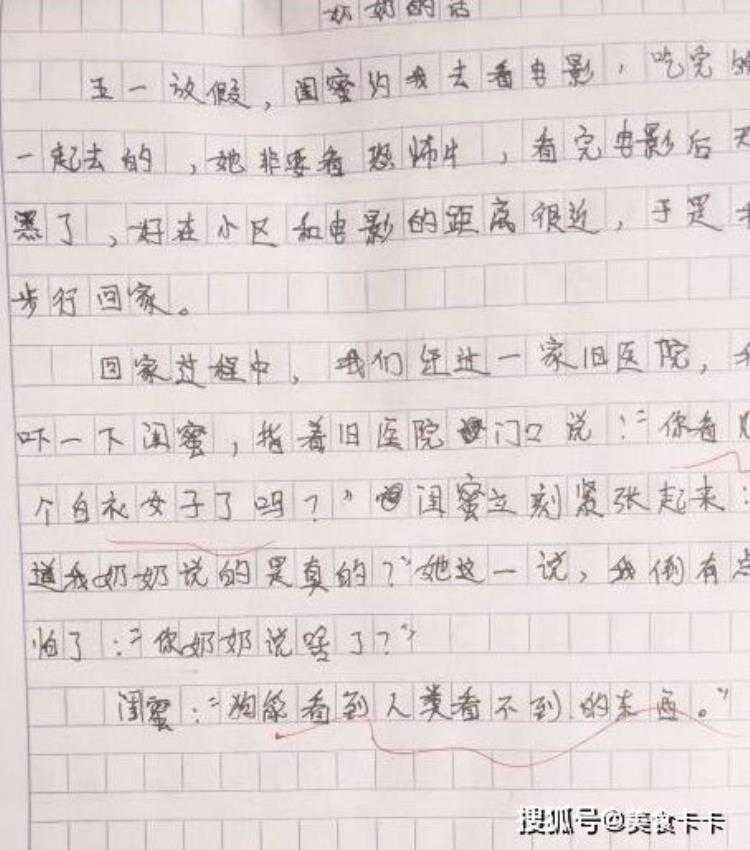 奶奶的话
五一放假，闺蜜约我去看电影，吃完
一起去的，她非要看恐怖片，看完电影后天
黑了，好在小区和电影的距离很近，于是
步行回家。
回家过程中，我们经过一家旧医院，我
吓一下闺蜜，指着旧医院门口说：“你看
个白衣女子了吗？”闺蜜立刻紧张起来：
道我奶奶说的是真的？”她这一说，我倒有点
怕了：“你奶奶说啥了？”
闺蜜：“狗能看到人类看不到的东西。”
搜狐号@美食卡卡